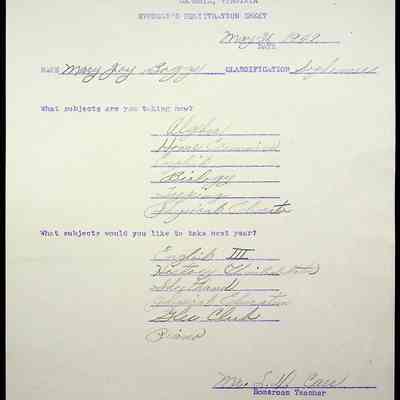 VIRGINIA
STUDENT'S REGISTRATION SHEET
May 21 1969
DATE
NAME Mary Joy CLASSIFICATION Sophomore
What subjects are you taking now?
Algebra
Home Economics
English
Biology
Typing
Physical
What subjects would you like to take next year?
English III
History (United States)
Shorthand
Physical Education
Glee Club
Piano
Mr.
Homeroom Teacher